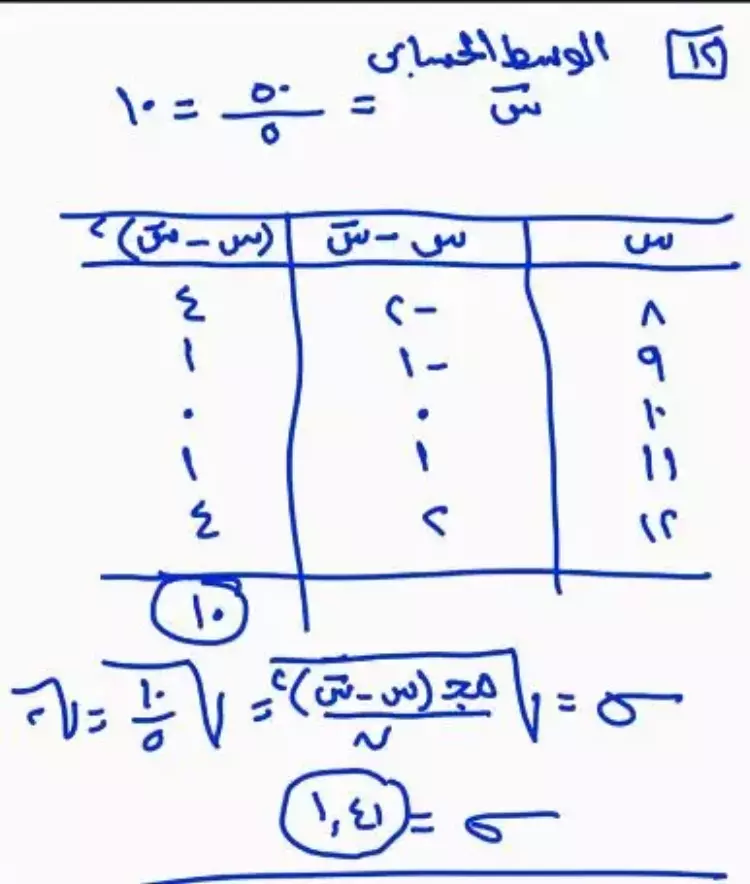 ١٢ الوسط الحسابى
س̄ = ٥٠/٥ = ١٠
س | س - س̄ | (س - س̄)٢
٨ | -٢ | ٤
٩ | -١ | ١
١٠ | ٠ | ٠
١١ | ١ | ١
١٢ | ٢ | ٤
١٠
σ = √(مجـ (س - س̄)٢ / ن) = √(١٠/٥) = √٢
σ = ١,٤١